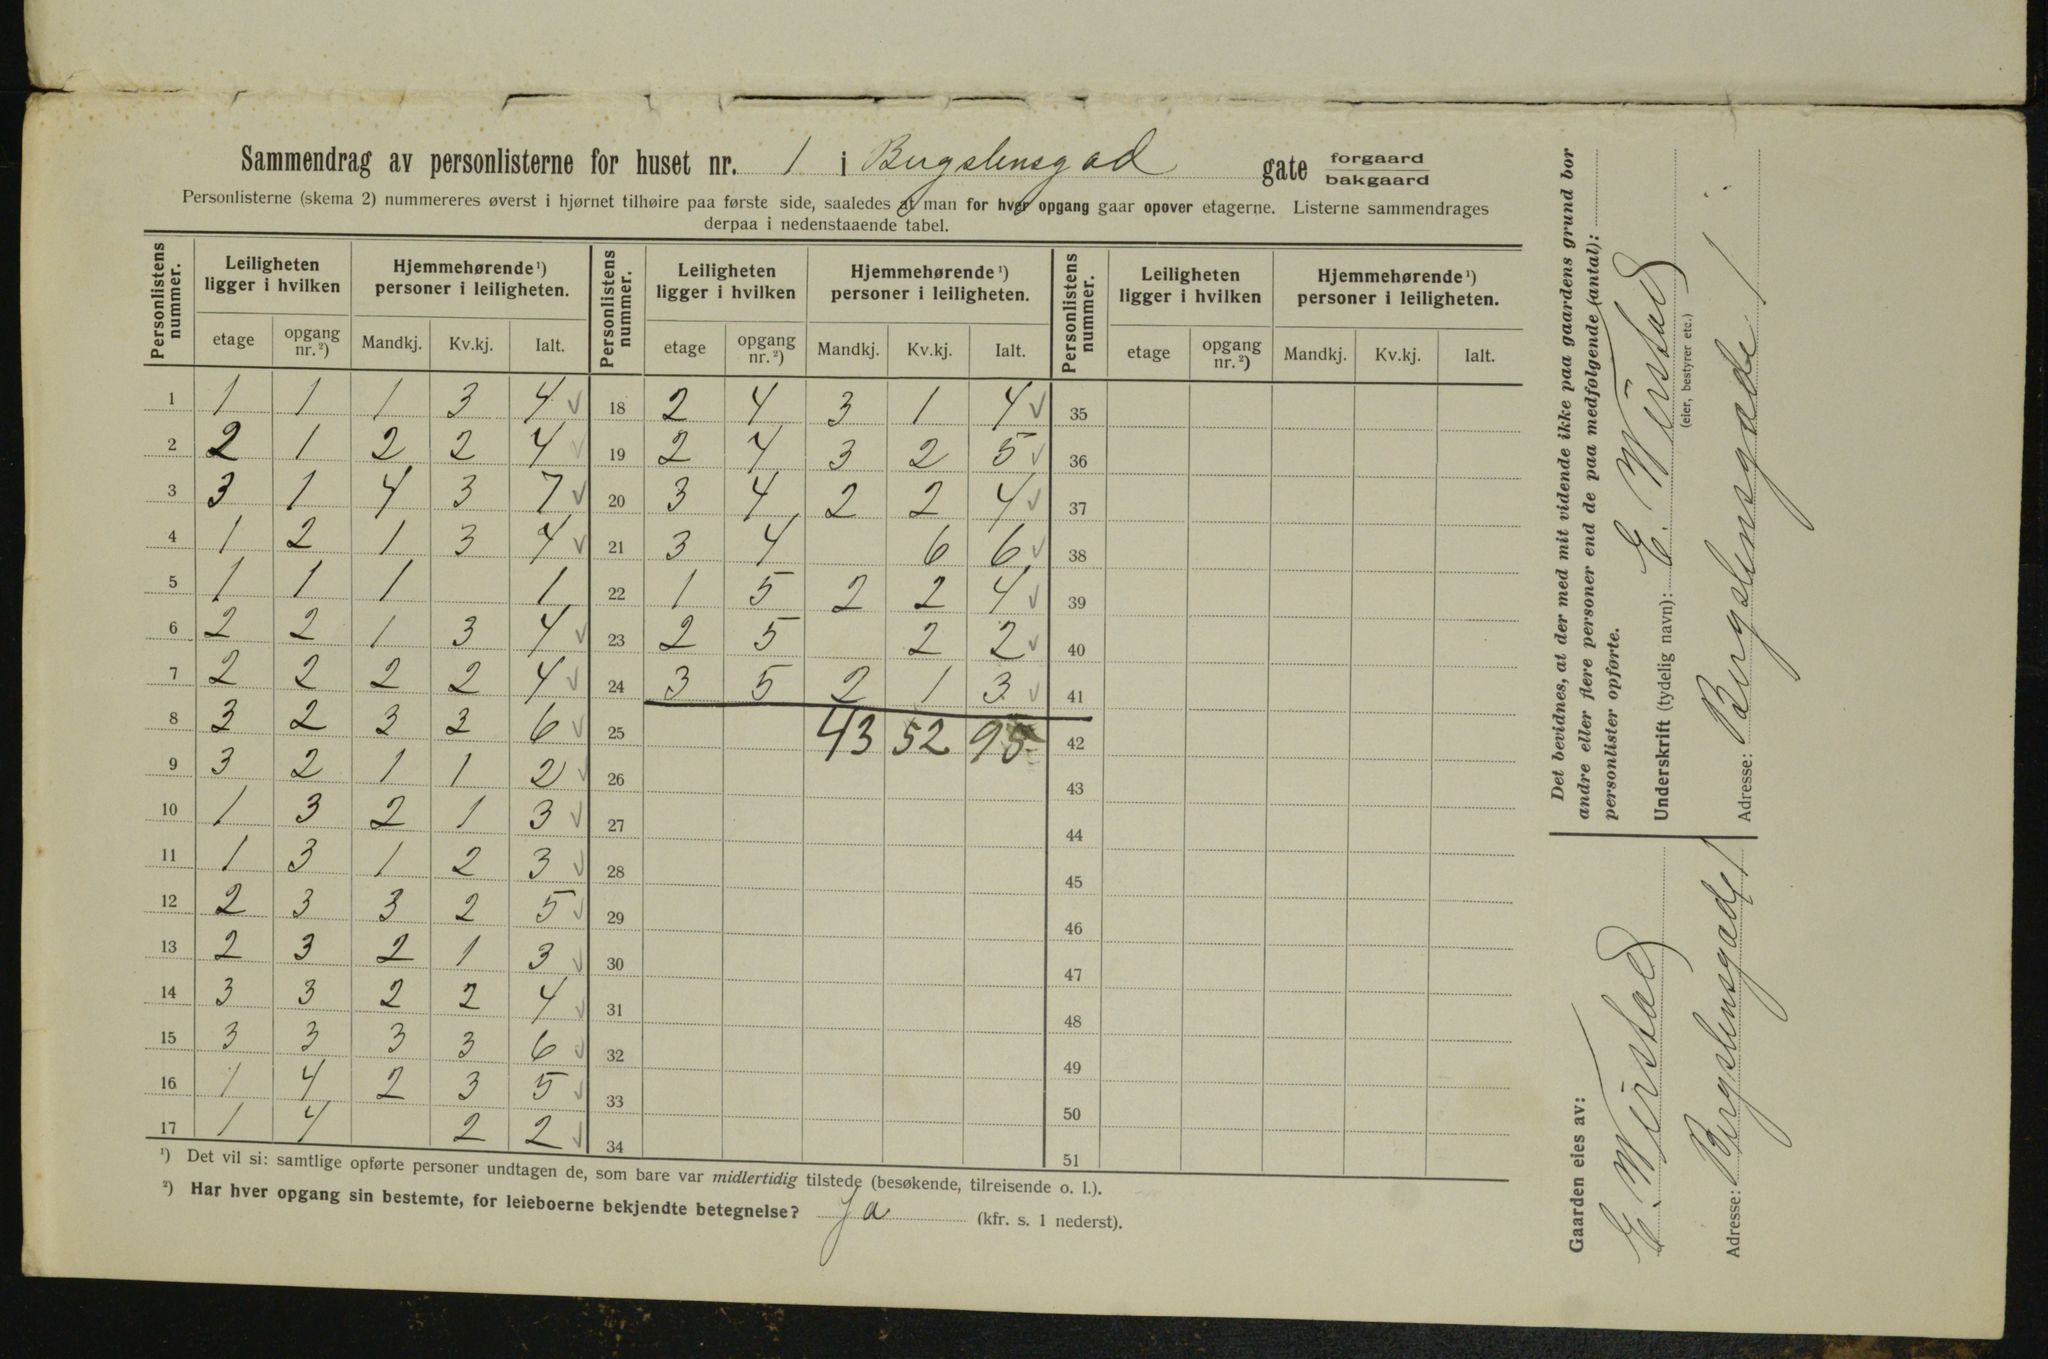 Sammendrag av personlisterne for huset nr. 1 i Bergslensgad gate forgaard bakgaard
Personlisterne (skema 2) nummereres øverst i hjørnet tilhøire paa første side, saaledes at man for hver opgang gaar opover etagerne. Listerne sammendrages
derpaa i nedenstaaende tabel.
Personlistens nummer. Leiligheten ligger i hvilken Hjemmehørende ¹) personer i leiligheten. Personlistens nummer. Leiligheten ligger i hvilken Hjemmehørende ¹) personer i leiligheten. Personlistens nummer. Leiligheten ligger i hvilken Hjemmehørende ¹) personer i leiligheten.
etage opgang nr. ²) Mandkj. Kv.kj. Ialt. etage opgang nr. ²) Mandkj. Kv.kj. Ialt. etage opgang nr. ²) Mandkj. Kv.kj. Ialt.
1 1 1 1 3 4 ✓ 18 2 4 3 1 4 ✓ 35
2 2 1 2 2 4 ✓ 19 2 4 3 2 5 ✓ 36
3 3 1 4 3 7 ✓ 20 3 4 2 2 4 ✓ 37
4 1 2 1 3 4 ✓ 21 3 4 6 6 ✓ 38
5 1 1 1 1 22 1 5 2 2 4 ✓ 39
6 2 2 1 3 4 ✓ 23 2 5 2 2 ✓ 40
7 2 2 2 2 4 ✓ 24 3 5 2 1 3 ✓ 41
8 3 2 3 3 6 ✓ 25 43 52 95 42
9 3 2 1 1 2 ✓ 26 43
10 1 3 2 1 3 ✓ 27 44
11 1 3 1 2 3 ✓ 28 45
12 2 3 3 2 5 ✓ 29 46
13 2 3 2 1 3 ✓ 30 47
14 3 3 2 2 4 ✓ 31 48
15 3 3 3 3 6 ✓ 32 49
16 1 4 2 3 5 ✓ 33 50
17 1 4 2 2 ✓ 34 51
¹) Det vil si: samtlige opførte personer undtagen de, som bare var midlertidig tilstede (besøkende, tilreisende o. l.).
²) Har hver opgang sin bestemte, for leieboerne bekjendte betegnelse? Ja (kfr. s. 1 nederst).
Det bevidnes, at der med mit vidende ikke paa gaardens grund bor
andre eller flere personer end de paa medfølgende (antal):
personlister opførte.
Underskrift (tydelig navn): E. Wirstad
(eier, bestyrer etc.)
Adresse: Bergslensgade 1
Gaarden eies av:
E. Wirstad
Adresse: Bergslensgade 1